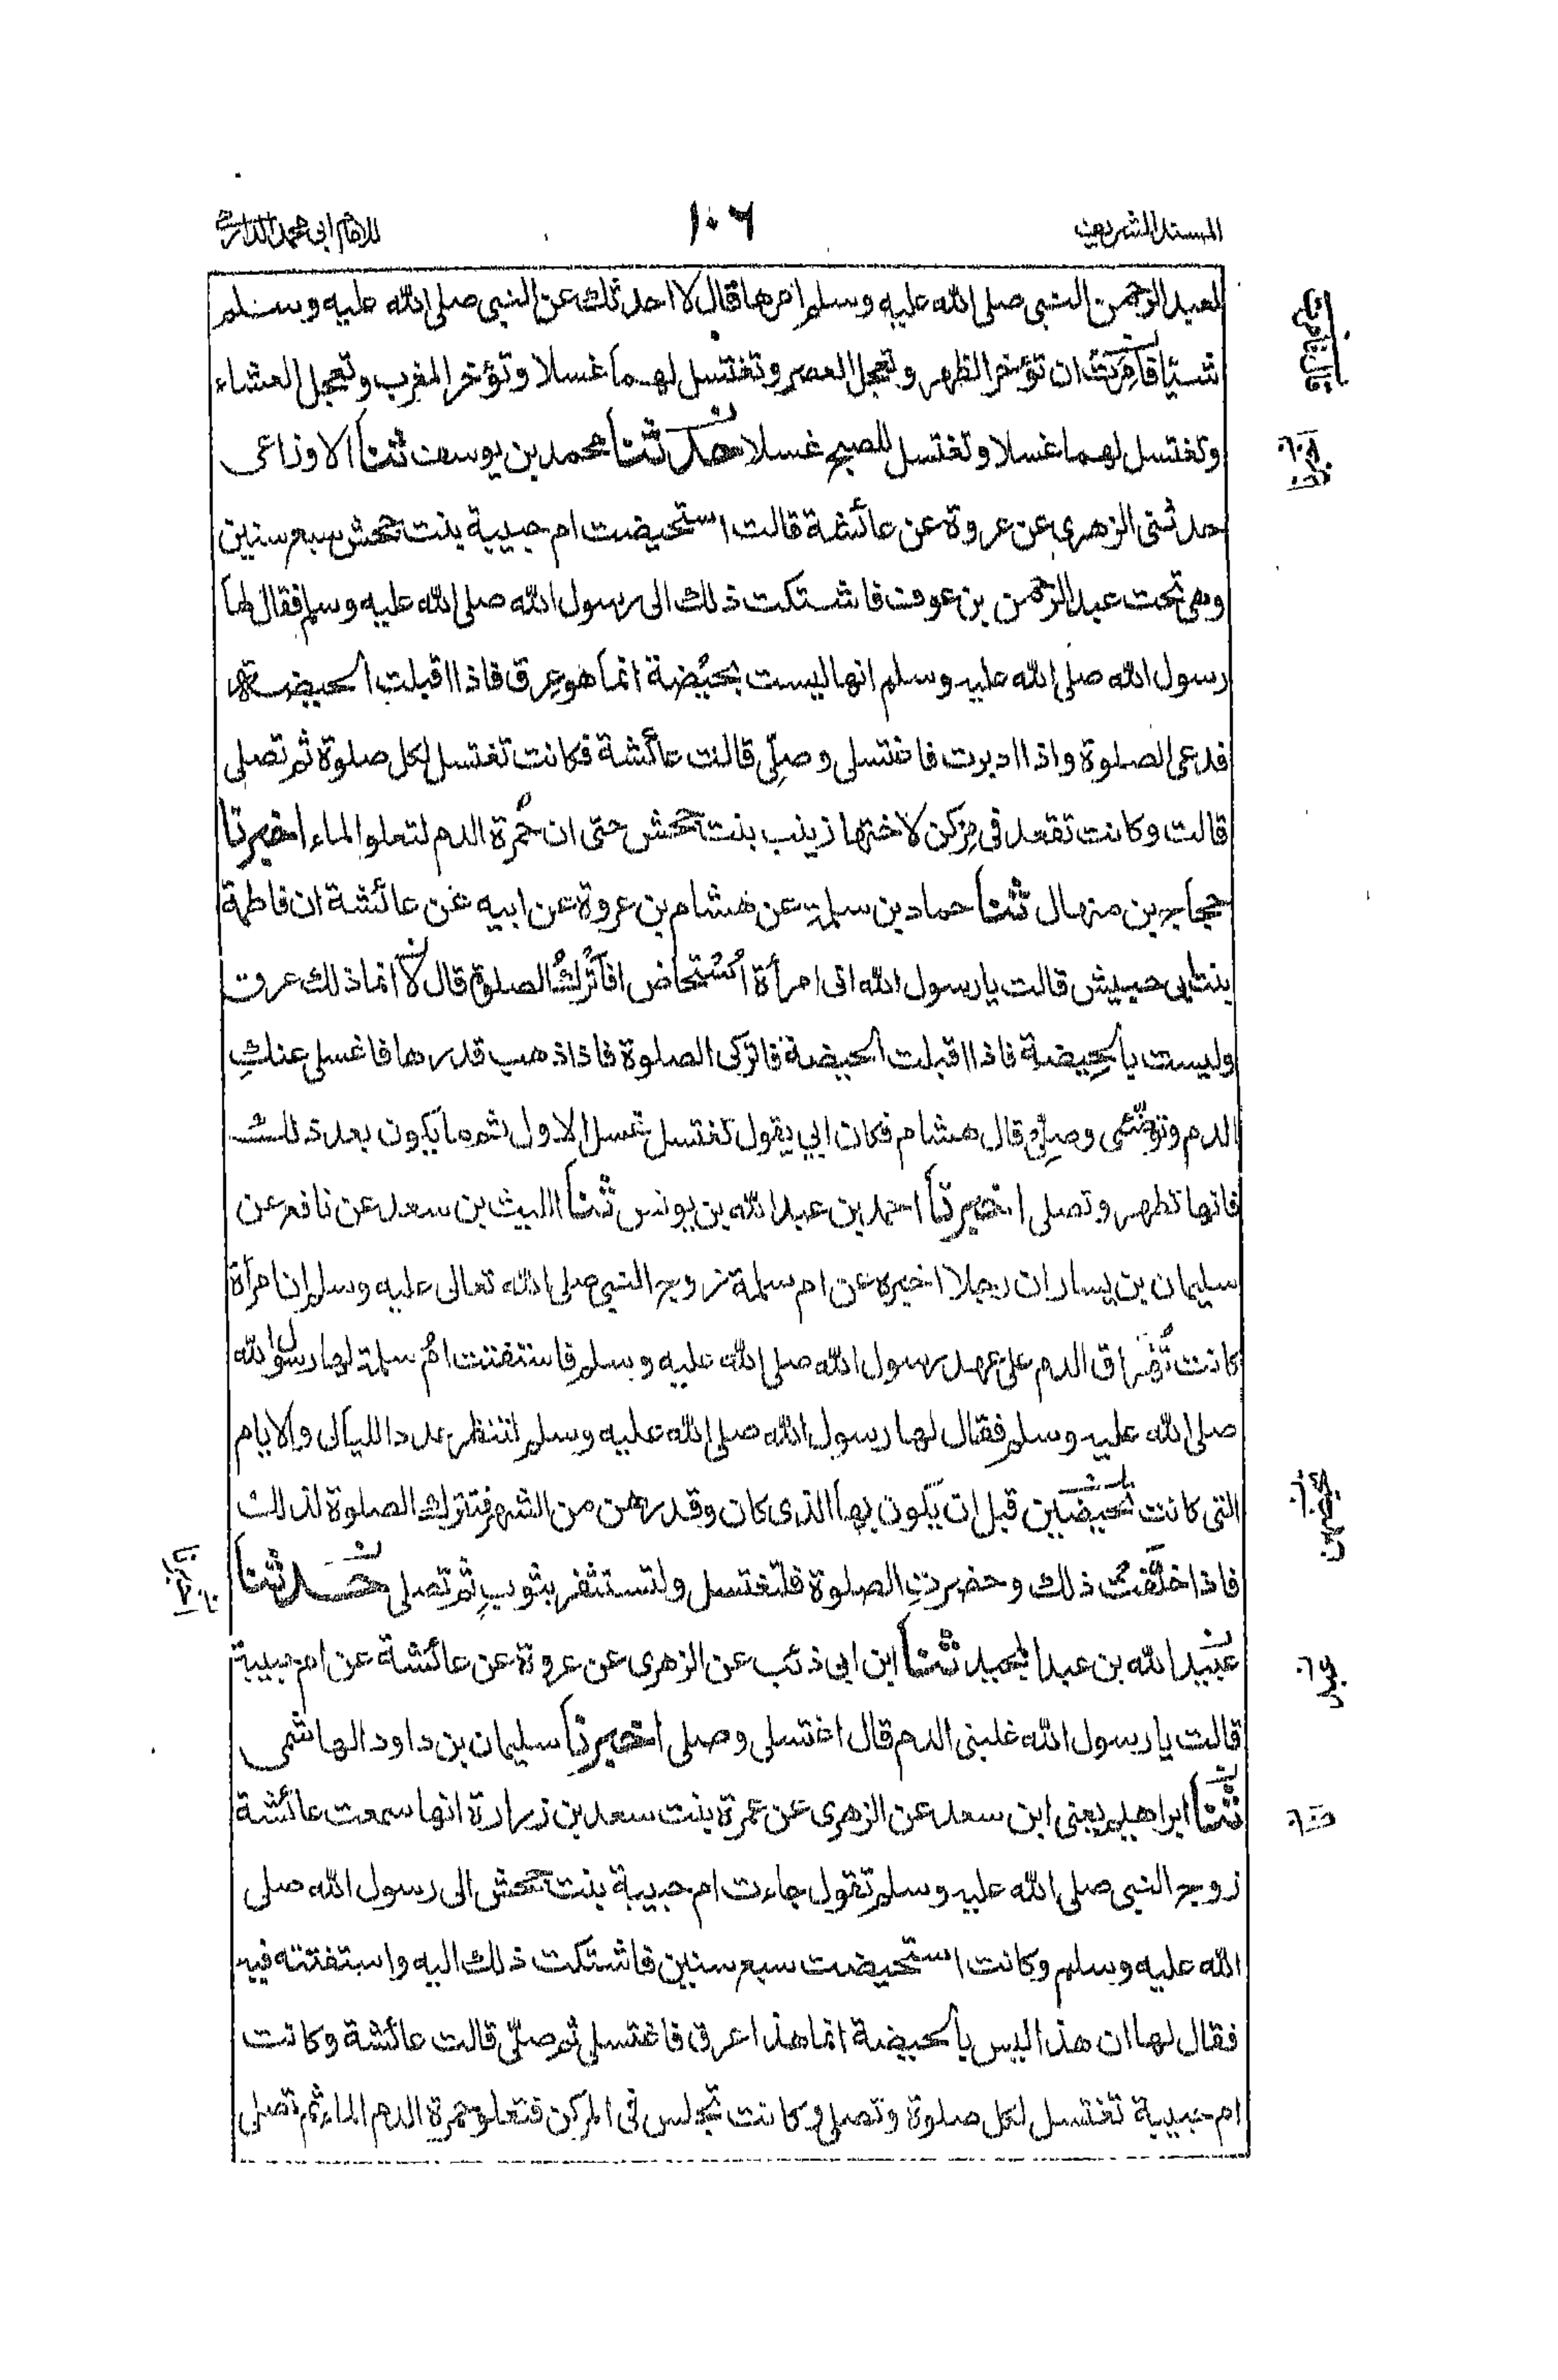 المسند الشريف ١٠٦ للامام ابي محمد الدارمي
لعبد الرحمن النبي صلى الله عليه وسلم امرها قال لا احدثك عن النبي صلى الله عليه وسلم
شيئا فامرت ان تؤخر الظهر وتعجل العصر وتغتسل لهما غسلا وتؤخر المغرب وتعجل العشاء
وتغتسل لهما غسلا وتغتسل للصبح غسلا حدثنا محمد بن يوسف ثنا الاوزاعى
حدثنى الزهرى عن عروة عن عائشة قالت استحيضت ام حبيبة بنت جحش سبع سنين
وهى تحت عبد الرحمن بن عوف فاشتكت ذلك الى رسول الله صلى الله عليه وسلم فقال لها
رسول الله صلى الله عليه وسلم انها ليست بحيضة انما هو عرق فاذا اقبلت الحيضة
فدعى الصلوة واذا ادبرت فاغتسلى وصلّى قالت عائشة فكانت تغتسل لكل صلوة ثم تصلى
قالت وكانت تقعد فى مركن لاختها زينب بنت جحش حتى ان حُمرة الدم لتعلوا الماء اخبرنا
حجاج بن منهال ثنا حماد بن سلمة عن هشام بن عروة عن ابيه عن عائشة ان فاطمة
بنت ابى حبيش قالت يا رسول الله انى امرأة اُسْتحاض افاَتْرُكُ الصلوة قال لا انما ذلك عرق
وليست بالحيضة فاذا اقبلت الحيضة فاتركى الصلوة فاذا ذهب قدرها فاغسلى عنكِ
الدم وتوضّئى وصلِّى قال هشام فكان ابي يقول تغتسل غسل الاول ثم ما يكون بعد ذلك
فانها تطهر وتصلى اخبرنا احمد بن عبد الله بن يونس ثنا الليث بن سعد عن نافع عن
سليمان بن يسار ان رجلا اخبره عن ام سلمة زوج النبى صلى الله تعالى عليه وسلم ان امرأة
كانت تُهَراق الدم على عهد رسول الله صلى الله عليه وسلم فاستفتت امُ سلمة لها رسول الله
صلى الله عليه وسلم فقال لها رسول الله صلى الله عليه وسلم لتنظر عدد الليالى والايام
التى كانت تحيضهن قبل ان يكون بها الذى كان وقدرهن من الشهر فتترك الصلوة لذلك
فاذا خلَّفَتْ ذلك وحضرتِ الصلوة فلتغتسل ولتستثفر بثوبٍ ثم تصلى حدثنا
عبيد الله بن عبد المجيد ثنا ابن ابى ذئب عن الزهرى عن عروة عن عائشة عن ام حبيبة
قالت يا رسول الله غلبنى الدم قال اغتسلى وصلى اخبرنا سليمان بن داود الهاشمى
ثنا ابراهيم يعنى ابن سعد عن الزهرى عن عمرة بنت سعد بن زرارة انها سمعت عائشة
زوج النبى صلى الله عليه وسلم تقول جاءت ام حبيبة بنت جحش الى رسول الله صلى
الله عليه وسلم وكانت استحيضت سبع سنين فاشتكت ذلك اليه واستفتته فيه
فقال لها ان هذا ليس بالحيضة انما هذا عرق فاغتسلى ثم صلّى قالت عائشة وكانت
ام حبيبة تغتسل لكل صلوة وتصلى وكانت تجلس فى المركن فتعلو حمرة الدم الماء ثم تصلى